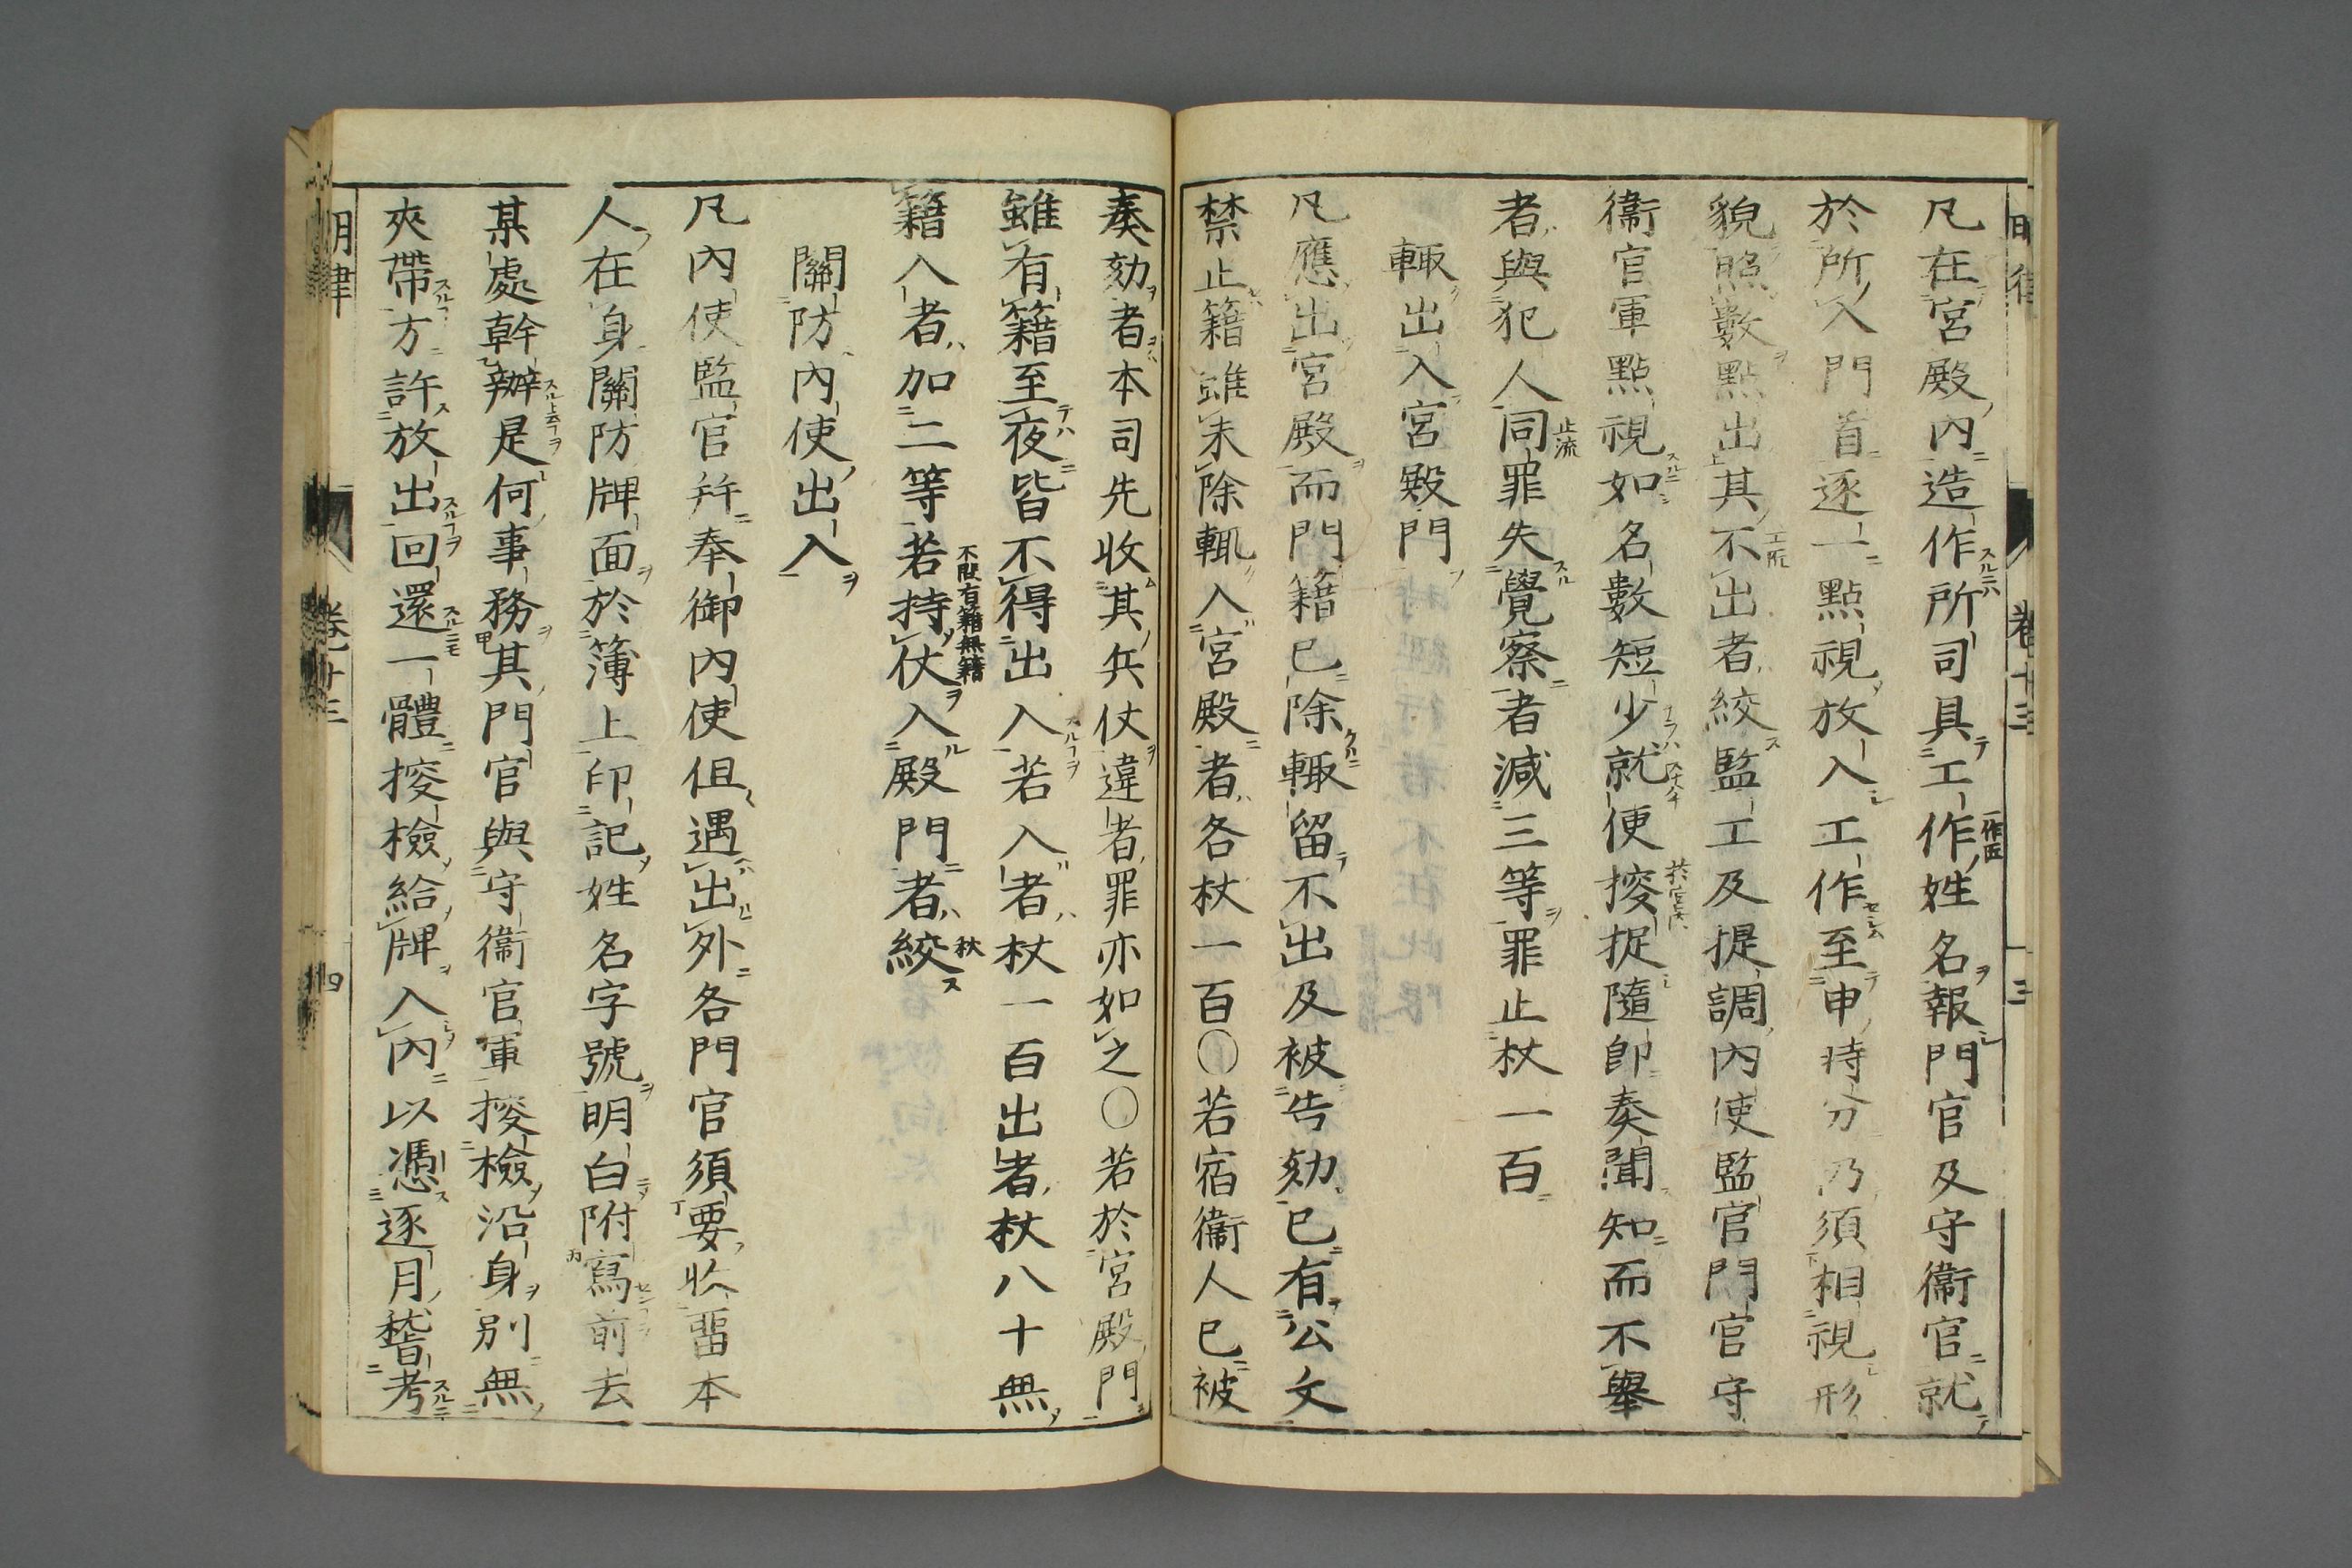 凡在宮殿內造作所司具工作姓名報門官及守衞官就
於所入門首逐一點視放入工作至申時分乃須相視形
貌照數點出其不出者絞監工及提調內使監官門官守
衞官軍點視如名數短少就便搜捉隨卽奏聞知而不舉
者與犯人同罪失覺察者減三等罪止杖一百
輙出入宮殿門
凡應出宮殿而門籍已除輙留不出及被告劾已有公文
禁止籍雖未除輙入宮殿者各杖一百〇若宿衞人已被
奏劾者本司先收其兵仗違者罪亦如之〇若於宮殿門
雖有籍至夜皆不得出入若入者杖一百出者杖八十無
籍入者加二等若持仗入殿門者絞
關防內使出入
凡內使監官幷奉御內使但遇出外各門官須要收留本
人在身關防牌面於簿上印記姓名字號明白附寫前去
某處幹辦是何事務其門官與守衞官軍搜檢沿身別無
夾帶方許放出回還一體搜檢給牌入內以憑逐月稽考
明律 卷十三 四